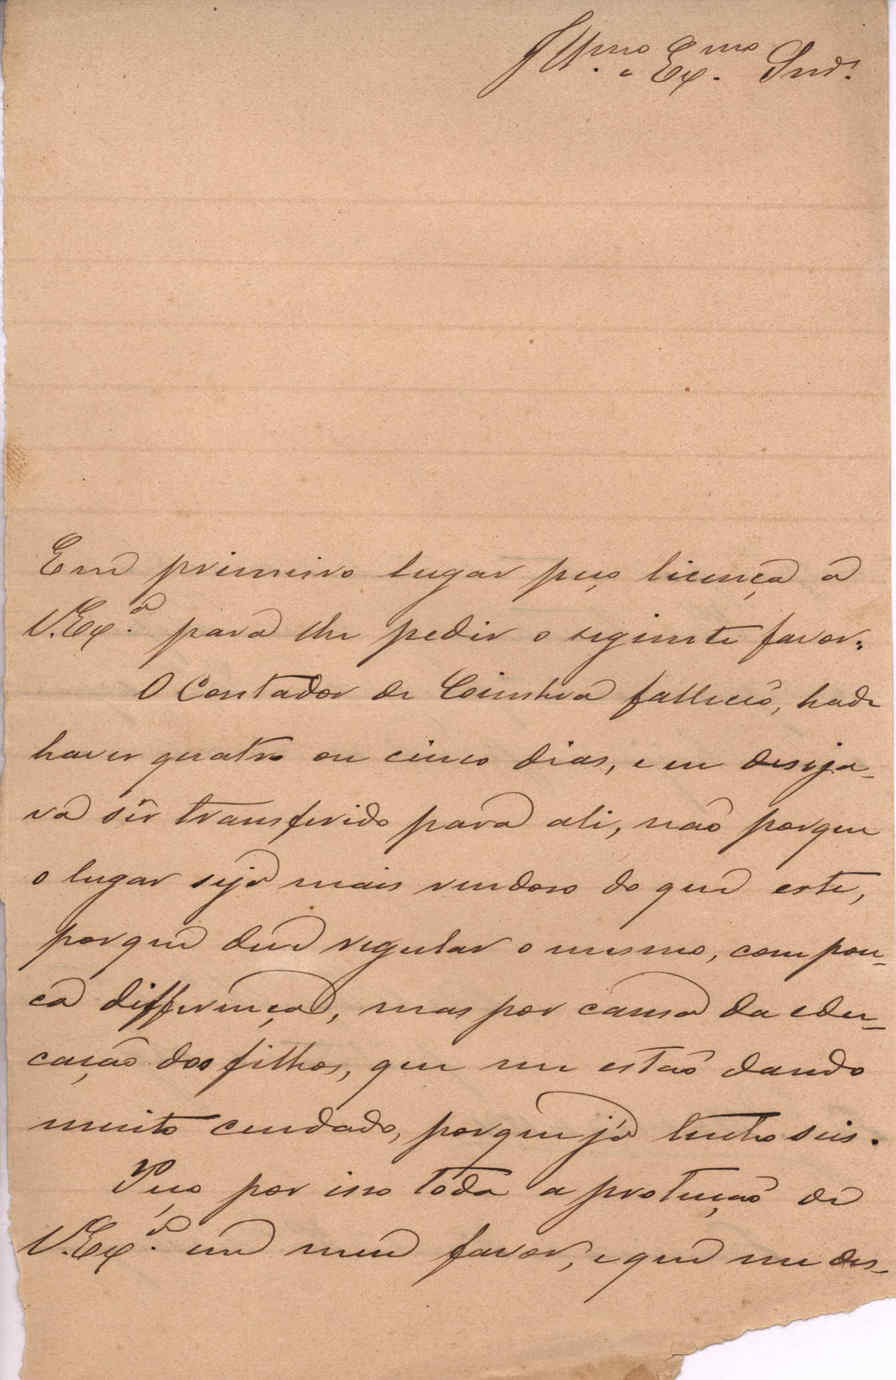 Ill.mo e Ex.mo Snr.
Em primeiro lugar peço licença a
V.Ex.a para lhe pedir o seguinte favor.
O Contador de Coimbra falleceo, hade
haver quatro ou cinco dias, e eu deseja-
va sêr transferido para ali, não porque
o lugar seja mais rendoso do que este,
porque deve regular o mesmo, com pou-
ca differença, mas por causa da edu-
cação dos filhos, que me estão dando
muito cuidado, porque já tenho seis.
Peço por isso toda a proteição de
V.Ex.a em meu favor, e que me des-